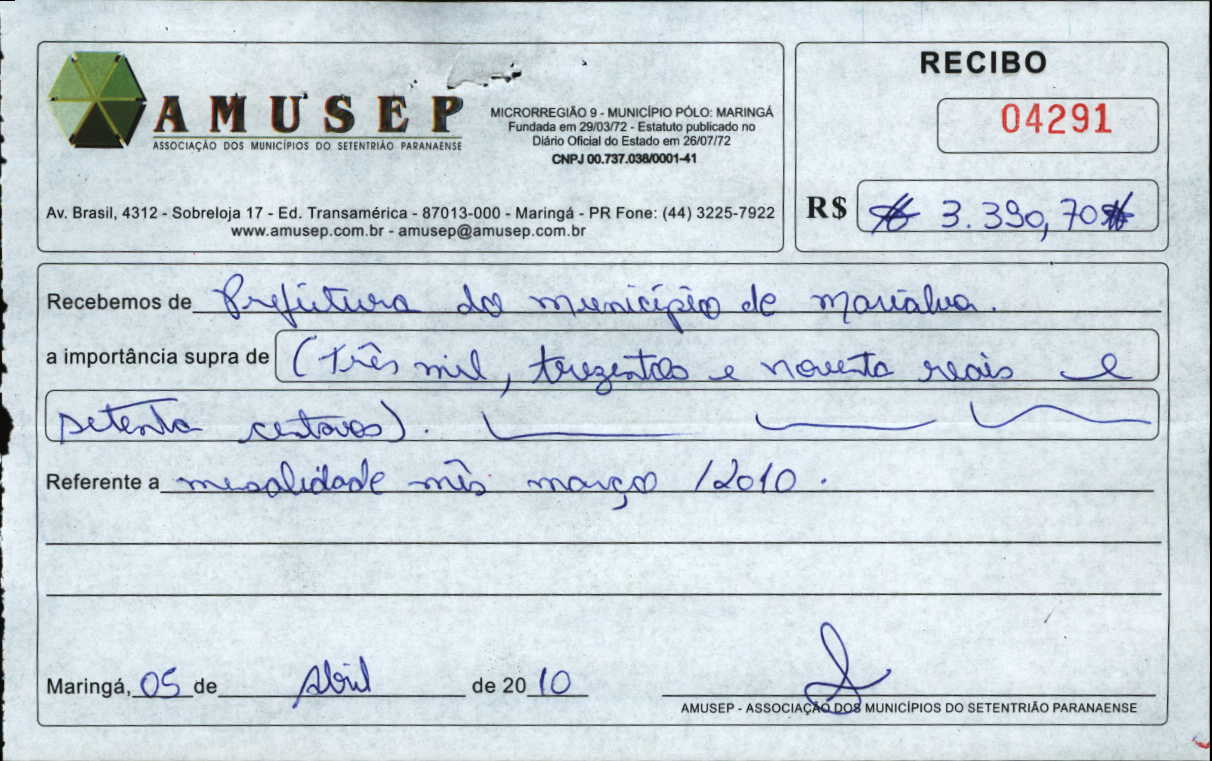 AMUSEP
ASSOCIAÇÃO DOS MUNICÍPIOS DO SETENTRIÃO PARANAENSE
MICRORREGIÃO 9 - MUNICÍPIO PÓLO: MARINGÁ
Fundada em 29/03/72 - Estatuto publicado no
Diário Oficial do Estado em 26/07/72
CNPJ 00.737.038/0001-41
Av. Brasil, 4312 - Sobreloja 17 - Ed. Transamérica - 87013-000 - Maringá - PR Fone: (44) 3225-7922
www.amusep.com.br - amusep@amusep.com.br
RECIBO
04291
R$ # 3.390,70 #
Recebemos de Prefeitura do município de Marialva.
a importância supra de (Três mil, trezentos e noventa reais e
setenta centavos).
Referente a mesalidade mês março /2010.
Maringá, 05 de Abril de 20 10
AMUSEP - ASSOCIAÇÃO DOS MUNICÍPIOS DO SETENTRIÃO PARANAENSE